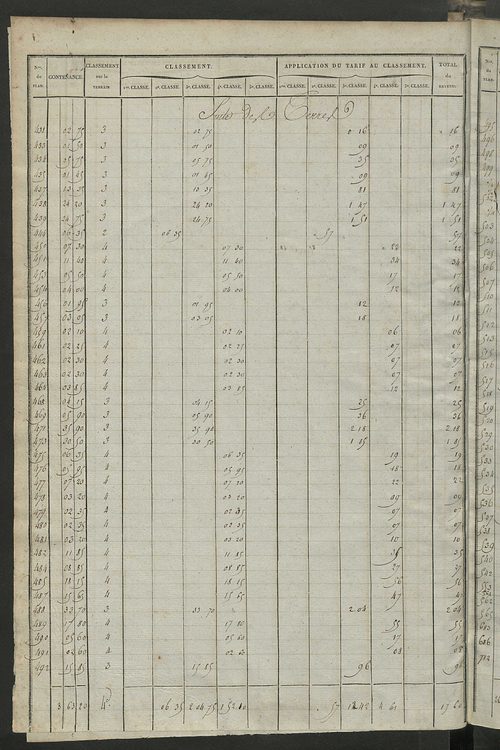 Nos. du PLAN. CONTENANCE. CLASSEMENT sur le TERRAIN CLASSEMENT. APPLICATION DU TARIF AU CLASSEMENT. TOTAL du REVENU.
1re. CLASSE. 2e. CLASSE. 3e. CLASSE. 4e. CLASSE. 5e. CLASSE. 1re. CLASSE. 2e. CLASSE. 3e. CLASSE. 4e. CLASSE. 5e. CLASSE.
Suite des Terres
431 02 75 3 02 75 0 16 16
433 01 50 3 01 50 09 09
434 05 75 3 05 75 35 35
435 01 45 3 01 45 09 09
437 13 35 3 13 35 81 81
438 24 20 3 24 20 1 47 1 47
439 24 75 3 24 75 1 51 1 51
444 06 35 2 06 35 57 57
450 07 30 4 07 30 22 22
451 11 40 4 11 40 34 34
453 05 50 4 05 50 17 17
454 04 00 4 04 00 12 12
456 01 95 3 01 95 12 12
457 03 05 3 03 05 18 18
459 02 10 4 02 10 06 06
461 02 25 4 02 25 07 07
462 02 30 4 02 30 07 07
463 02 30 4 02 30 07 07
464 03 85 4 03 85 12 12
468 04 15 3 04 15 25 25
469 05 90 3 05 90 36 36
471 35 90 3 35 90 2 18 2 18
473 30 50 3 30 50 1 85 1 85
475 06 35 4 06 35 19 19
476 05 95 4 05 95 18 18
477 07 20 4 07 20 22 22
478 03 20 4 03 20 09 09
479 02 35 4 02 35 07 07
480 02 35 4 02 35 07 07
481 03 20 4 03 20 10 10
482 11 85 4 11 85 35 35
484 08 85 4 08 85 27 27
485 18 15 4 18 15 56 56
487 15 65 4 15 65 47 47
488 33 70 3 33 70 2 04 2 04
489 17 80 4 17 80 55 55
490 05 60 4 05 60 17 17
491 02 60 4 02 60 08 08
492 15 85 3 15 85 96 96
3 63 20 06 35 2 04 75 1 52 10 57 12 42 4 61